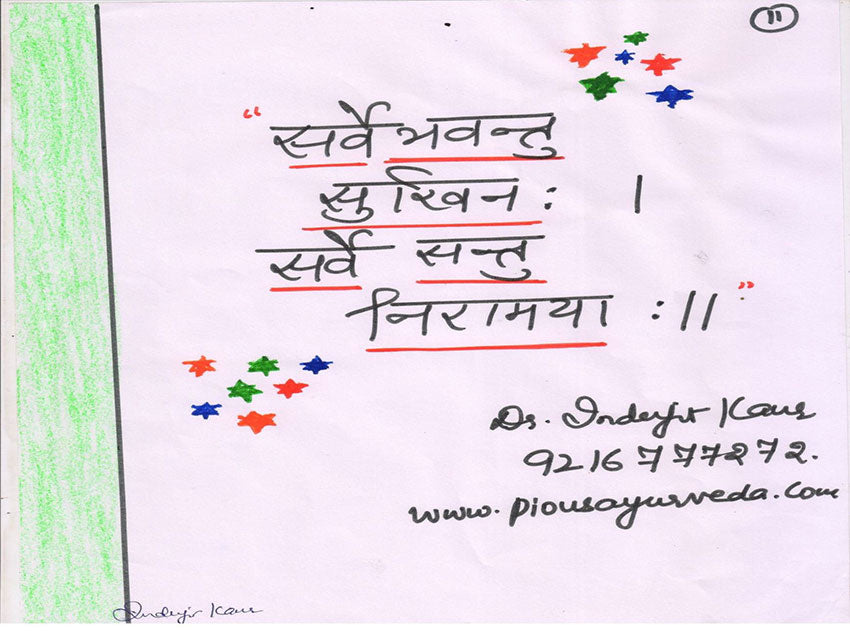 11
"सर्वे भवन्तु
सुखिन: ।
सर्वे सन्तु
निरामया :।।"
Dr. Inderjit Kaur
9216777272.
www.piousayurveda.com
Inderjit Kaur